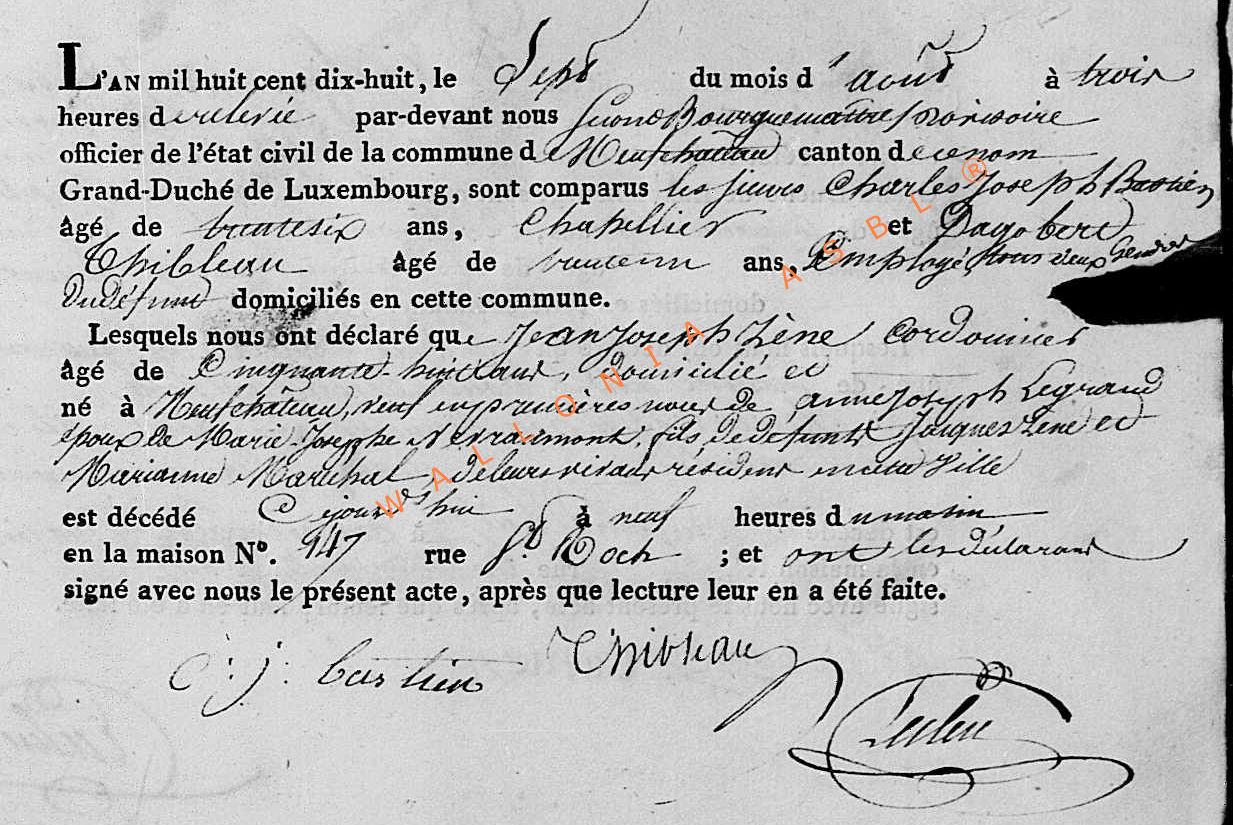 L'AN mil huit cent dix-huit, le Sept du mois d'août à trois
heures de relevée par-devant nous second Bourguemaitre provisoire
officier de l'état civil de la commune de Neufchateau canton de ce nom
Grand-Duché de Luxembourg, sont comparus les sieurs Charles Joseph Bastien
âgé de trentesix ans, Chapellier et Dagobert
Thibleau âgé de trenteun ans, Employé, tous deux Gendres
du défunt domiciliés en cette commune.
Lesquels nous ont déclaré que Jean Joseph Lène Cordonnier
âgé de Cinquante-huit ans, domicilié et
né à Neufchateau, veuf en premières noces de anne Joseph Legrand
époux de Marie Josephe Nevraumont, fils de defunts Jacques Lène et
Marianne Maréchal, de leurs vivans résident en cette Ville
est décédé Cejourd'hui à neuf heures du matin
en la maison N°. 147 rue St. Roch ; et ont les déclarans
signé avec nous le présent acte, après que lecture leur en a été faite.
C: J: bastien Thibleau
WALLONIA ASBL ®